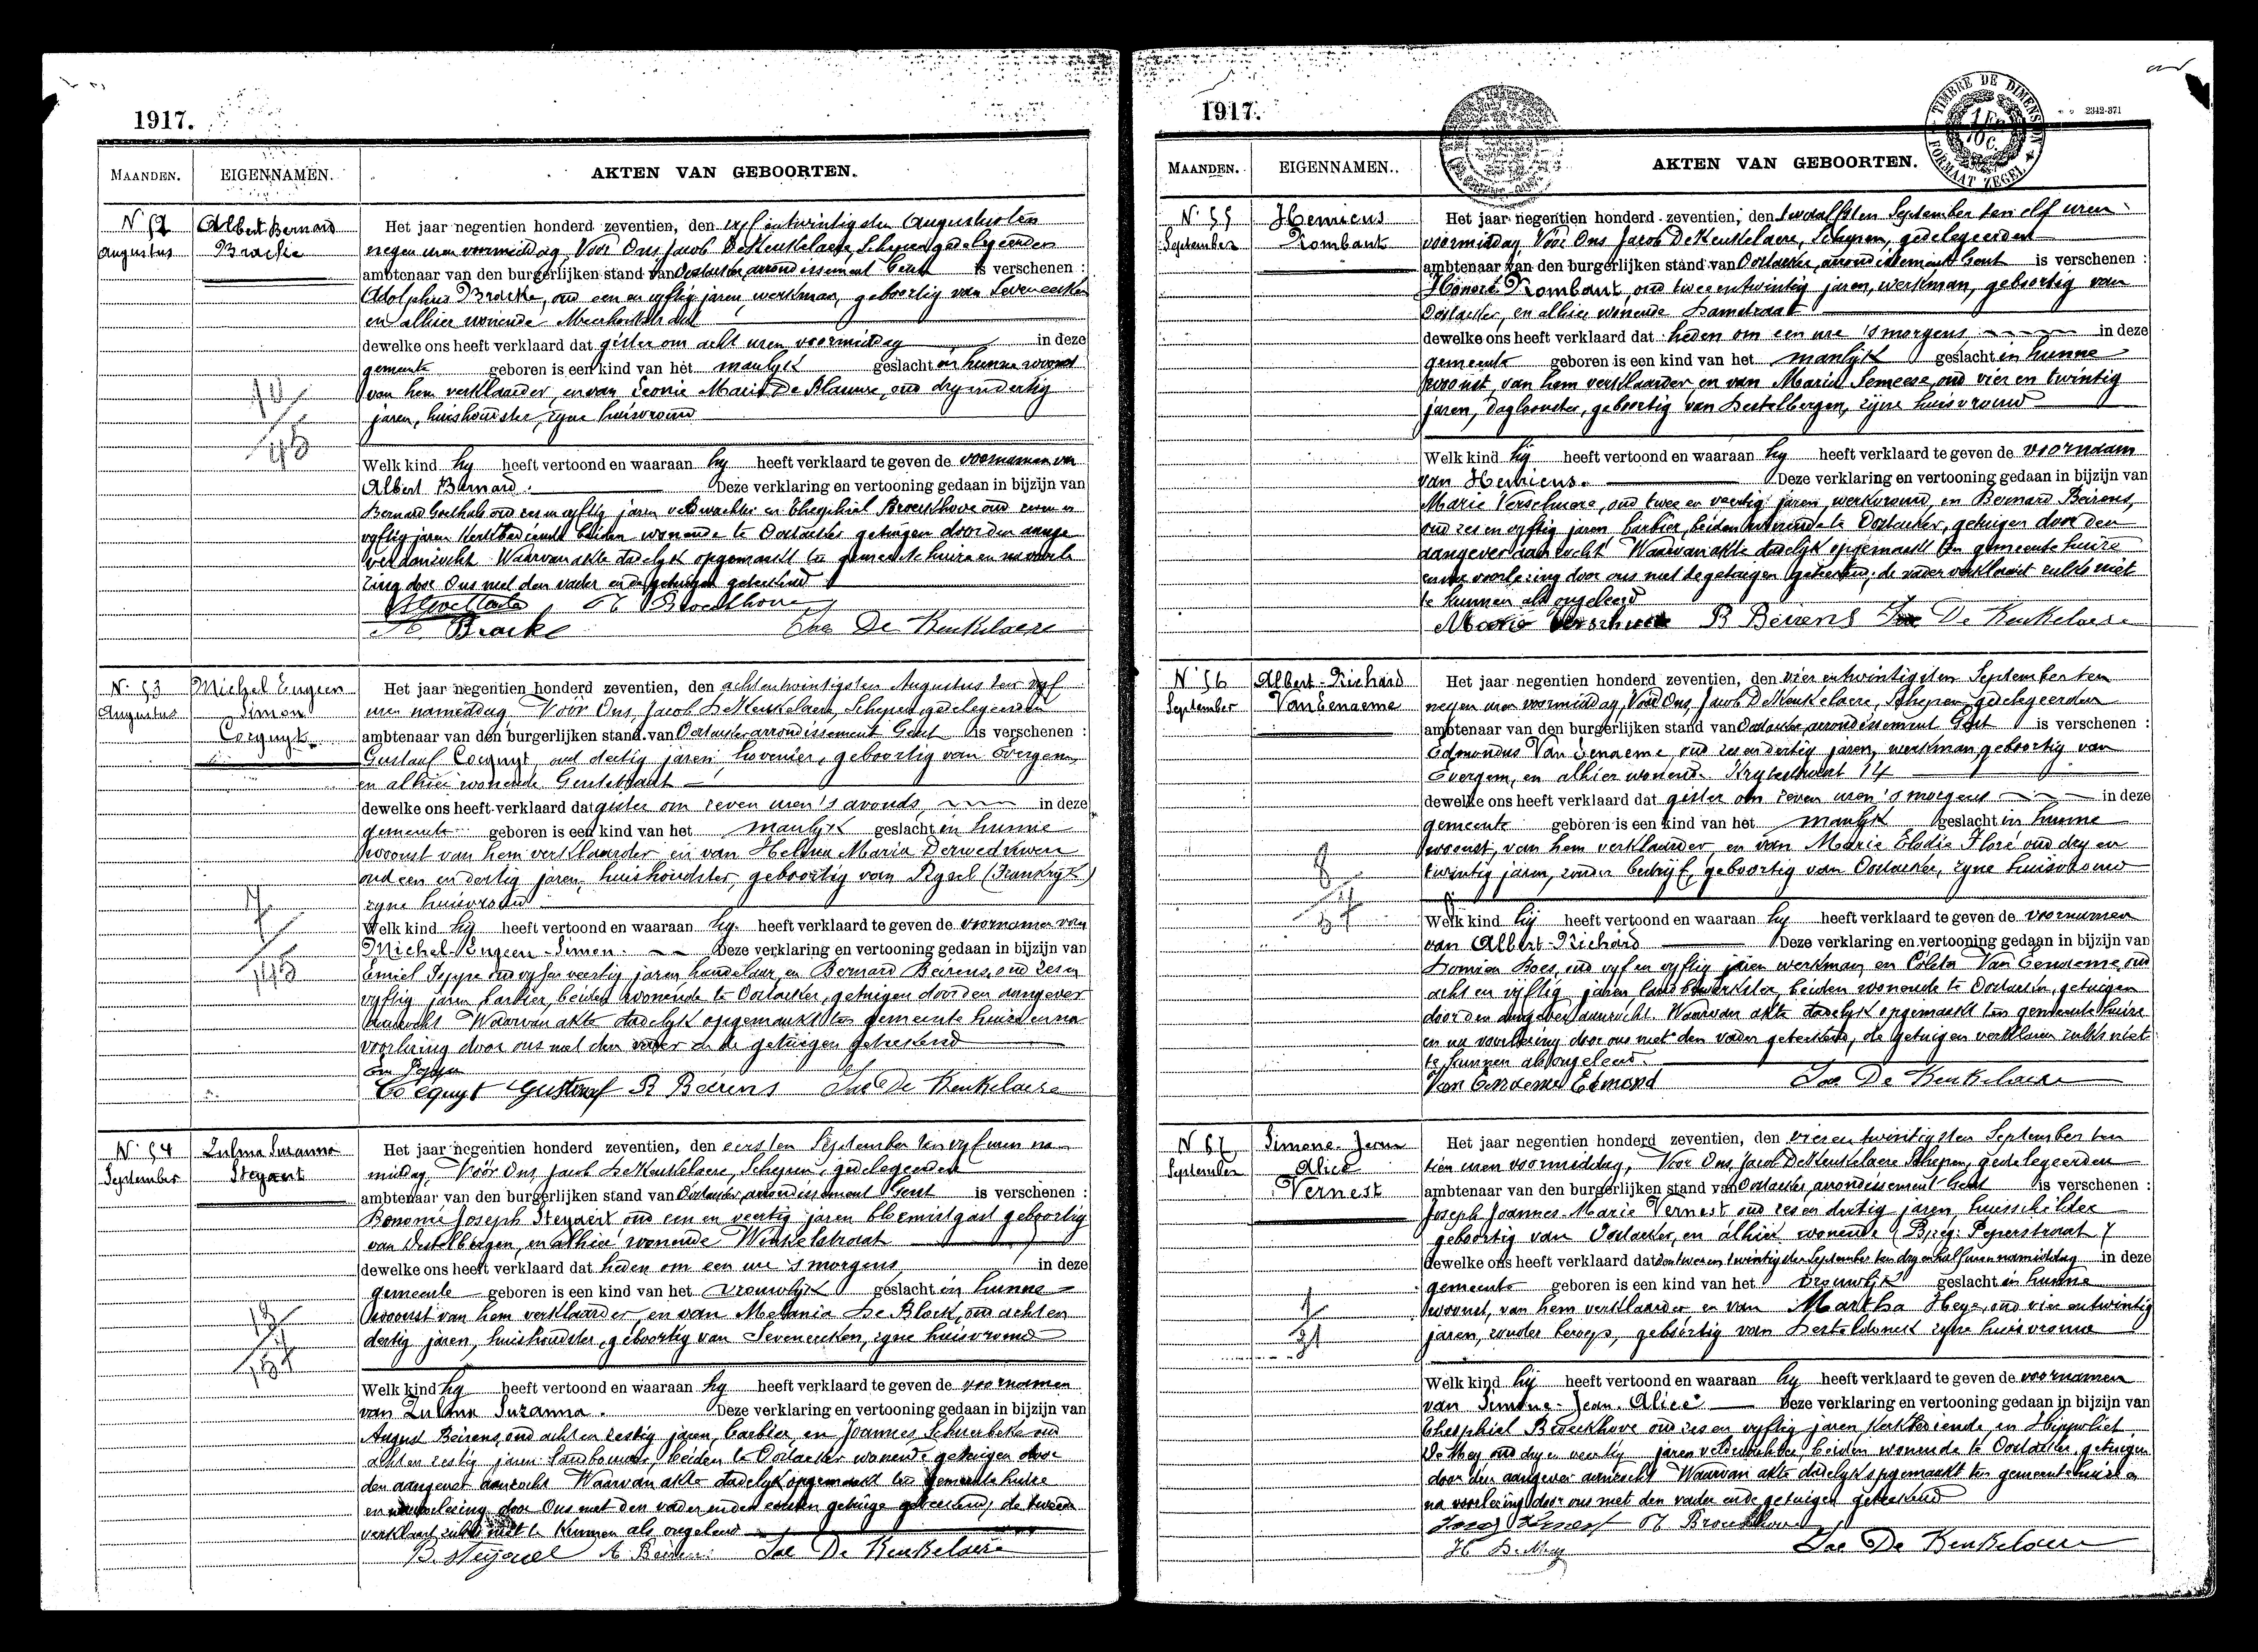 1917.
MAANDEN. EIGENNAMEN. AKTEN VAN GEBOORTEN.
N 52 Albert Bernard
Augustus Bracke
Het jaar negentien honderd zeventien, den vyfentwintigsten Augustus ten
negen uren voormiddag, Voor Ons Jacob De Keukelaere, Schepen, gedelegeerden
ambtenaar van den burgerlijken stand van Oostacker, arrondissement Gent is verschenen :
Adolphus Bracke, oud een en vyftig jaren, werkman, geboortig van Seveneecken
en alhier wonende
dewelke ons heeft verklaard dat gister om acht uren voormiddag in deze
gemeente geboren is een kind van het manlyk geslacht in hunne woonst
van hem verklaarder, en van Leonie Marie De Blauwe, oud dry en dertig
jaren, huishoudster, zyne huisvrouw
Welk kind hy heeft vertoond en waaraan hy heeft verklaard te geven de voornamen van
Albert Bernard. Deze verklaring en vertooning gedaan in bijzijn van
Bernard Goethals oud jaren veldwachter en Theophiel Broeckhove oud
vyftig jaren Kerkbediende beiden wonende te Oostacker getuigen door den aange
ver aanzocht. Waarvan akte dadelyk opgemaakt ten gemeentehuize en na voorle
zing door Ons met den vader en de getuigen geteekend
Th Broeckhove
Bracke Jac De Keukelaere
N. 53 Michel Eugeen
Augustus Simon
Cocquyt
Het jaar negentien honderd zeventien, den achtentwintigsten Augustus ten vyf
uren namiddag Voor Ons, Jacob De Keukelaere, Schepen gedelegeerden
ambtenaar van den burgerlijken stand van Oostacker arrondissement Gent is verschenen :
Gustaaf Cocquyt, oud dertig jaren, hovenier, geboortig van Evergem,
en alhier wonende Gentstraat
dewelke ons heeft verklaard dat gister om zeven uren 's avonds, in deze
gemeente geboren is een kind van het manlyk geslacht in hunne
woonst van hem verklaarder en van Helena Maria
oud een en dertig jaren, huishoudster, geboortig van Rysel (Frankryk)
zyne huisvrouw
Welk kind hy heeft vertoond en waaraan hy heeft verklaard te geven de voornamen van
Michel-Eugeen-Simon. Deze verklaring en vertooning gedaan in bijzijn van
Emiel oud vyf en veertig jaren handelaar, en Bernard Beirens, oud zes en
vyftig jaren barbier, beiden wonende te Oostacker, getuigen door den aangever
aanzocht Waarvan akte dadelyk opgemaakt ten gemeentehuize en na
voorlezing door ons met den vader en de getuigen geteekend
Cocquyt Gustaaf B Beirens Jac De Keukelaere
N. 54 Zulma Suzanna
September Steyaert
Het jaar negentien honderd zeventien, den eersten September ten vyf uren na
middag, Voor Ons, Jacob De Keukelaere, Schepen, gedelegeerden
ambtenaar van den burgerlijken stand van Oostacker, arrondissement Gent is verschenen :
Bonomie Joseph Steyaert oud een en veertig jaren bloemistgast geboortig
van Destelbergen, en alhier wonende Winkelstraat
dewelke ons heeft verklaard dat heden om een ure 's morgens in deze
gemeente geboren is een kind van het vrouwlyk geslacht in hunne
woonst van hem verklaarder en van Melania De Block, oud acht en
dertig jaren, huishoudster, geboortig van Seveneecken, zyne huisvrouw
Welk kind hy heeft vertoond en waaraan hy heeft verklaard te geven de voornamen
van Zulma Suzanna. Deze verklaring en vertooning gedaan in bijzijn van
August Beirens, oud acht en zestig jaren, barbier, en Joannes oud
acht en zestig jaren landbouwer, beiden te Oostacker wonende getuigen door
den aangever aanzocht Waarvan akte dadelyk opgemaakt ten gemeentehuize
en na voorlezing door Ons met den vader en den eersten getuige geteekend, de tweede
verklaart zulks niet te kunnen als ongeleerd
B. Steyaert A Beirens Jac De Keukelaere
1917.
TIMBRE DE DIMENSION
FORMAAT ZEGEL
2342-371
MAANDEN. EIGENNAMEN. AKTEN VAN GEBOORTEN.
N. 55 Henricus
September Rombaut
Het jaar negentien honderd zeventien, den twaalfsten September ten elf uren
voormiddag Voor Ons Jacob De Keukelaere, Schepen, gedelegeerden
ambtenaar van den burgerlijken stand van Oostacker, arrondissement Gent is verschenen :
Honoré Rombaut, oud twee en twintig jaren, werkman, geboortig van
Oostacker, en alhier wonende Damstraat
dewelke ons heeft verklaard dat heden om een ure 's morgens in deze
gemeente geboren is een kind van het manlyk geslacht in hunne
woonst, van hem verklaarder en van Maria Semeese, oud vier en twintig
jaren, geboortig van Destelbergen, zyne huisvrouw
Welk kind hy heeft vertoond en waaraan hy heeft verklaard te geven de voornaam
van Henricus. Deze verklaring en vertooning gedaan in bijzijn van
Marie Verschuere, oud twee en veertig jaren, werkvrouw, en Bernard Beirens,
oud zes en vyftig jaren barbier, beiden wonende te Oostacker, getuigen door den
aangever aanzocht Waarvan akte dadelyk opgemaakt ten gemeentehuize
en na voorlezing door ons met de getuigen geteekend; de vader verklaart zulks niet
te kunnen als ongeleerd
Marie Verschuere B Beirens Jac De Keukelaere
N. 56 Albert-Richard
September Van Eenaeme
Het jaar negentien honderd zeventien, den vier en twintigsten September ten
negen uren voormiddag, Voor Ons, Jacob De Keukelaere, Schepen, gedelegeerden
ambtenaar van den burgerlijken stand van Oostacker, arrondissement Gent is verschenen :
Edmondus Van Eenaeme, oud zes en dertig jaren, werkman geboortig van
Evergem, en alhier wonende 14
dewelke ons heeft verklaard dat gister om zeven uren 's morgens in deze
gemeente geboren is een kind van het manlyk geslacht in hunne
woonst, van hem verklaarder, en van Marie Elodie Floré oud dry en
twintig jaren, zonder bedryf, geboortig van Oostacker, zyne huisvrouw
Welk kind hij heeft vertoond en waaraan hy heeft verklaard te geven de voornamen
van Albert-Richard Deze verklaring en vertooning gedaan in bijzijn van
Damien Boes, oud vyf en vyftig jaren werkman, en Coleta Van Eenaeme, oud
acht en vyftig jaren landbewerkster, beiden wonende te Oostacker, getuigen
door den aangever aanzocht. Waarvan akte dadelyk opgemaakt ten gemeentehuize
en na voorlezing door ons met den vader geteekend, de getuigen verklaren zulks niet
te kunnen als ongeleerd.
Van Eenaeme Edmond Jac De Keukelaere
N 57 Simone-Jean
September Alice
Vernest
Het jaar negentien honderd zeventien, den vier en twintigsten September ten
tien uren voormiddag, Voor Ons, Jacob De Keukelaere Schepen, gedelegeerden
ambtenaar van den burgerlijken stand van Oostacker, arrondissement Gent is verschenen :
Joseph Joannes-Marie Vernest oud zes en dertig jaren, huisschilder
geboortig van Oostacker, en alhier wonende Peperstraat 7
dewelke ons heeft verklaard dat den twee en twintigsten September ten dry en half uren namiddag in deze
gemeente geboren is een kind van het vrouwlyk geslacht in hunne
woonst, van hem verklaarder, en van Martha Heye, oud vier en twintig
jaren, zonder beroep, geboortig van Desteldonck zyne huisvrouw
Welk kind hij heeft vertoond en waaraan hy heeft verklaard te geven de voornamen
van Simone-Jean-Alice Deze verklaring en vertooning gedaan in bijzijn van
Theophiel Broeckhove oud zes en vyftig jaren kerkbediende, en Hippoliet
De Mey oud dry en veertig jaren veldwachter, beiden wonende te Oostacker, getuigen
door den aangever aanzocht Waarvan akte dadelyk opgemaakt ten gemeentehuize en
na voorlezing door ons met den vader en de getuigen geteekend
Vernest Th Broeckhove
H De Mey Jac De Keukelaere